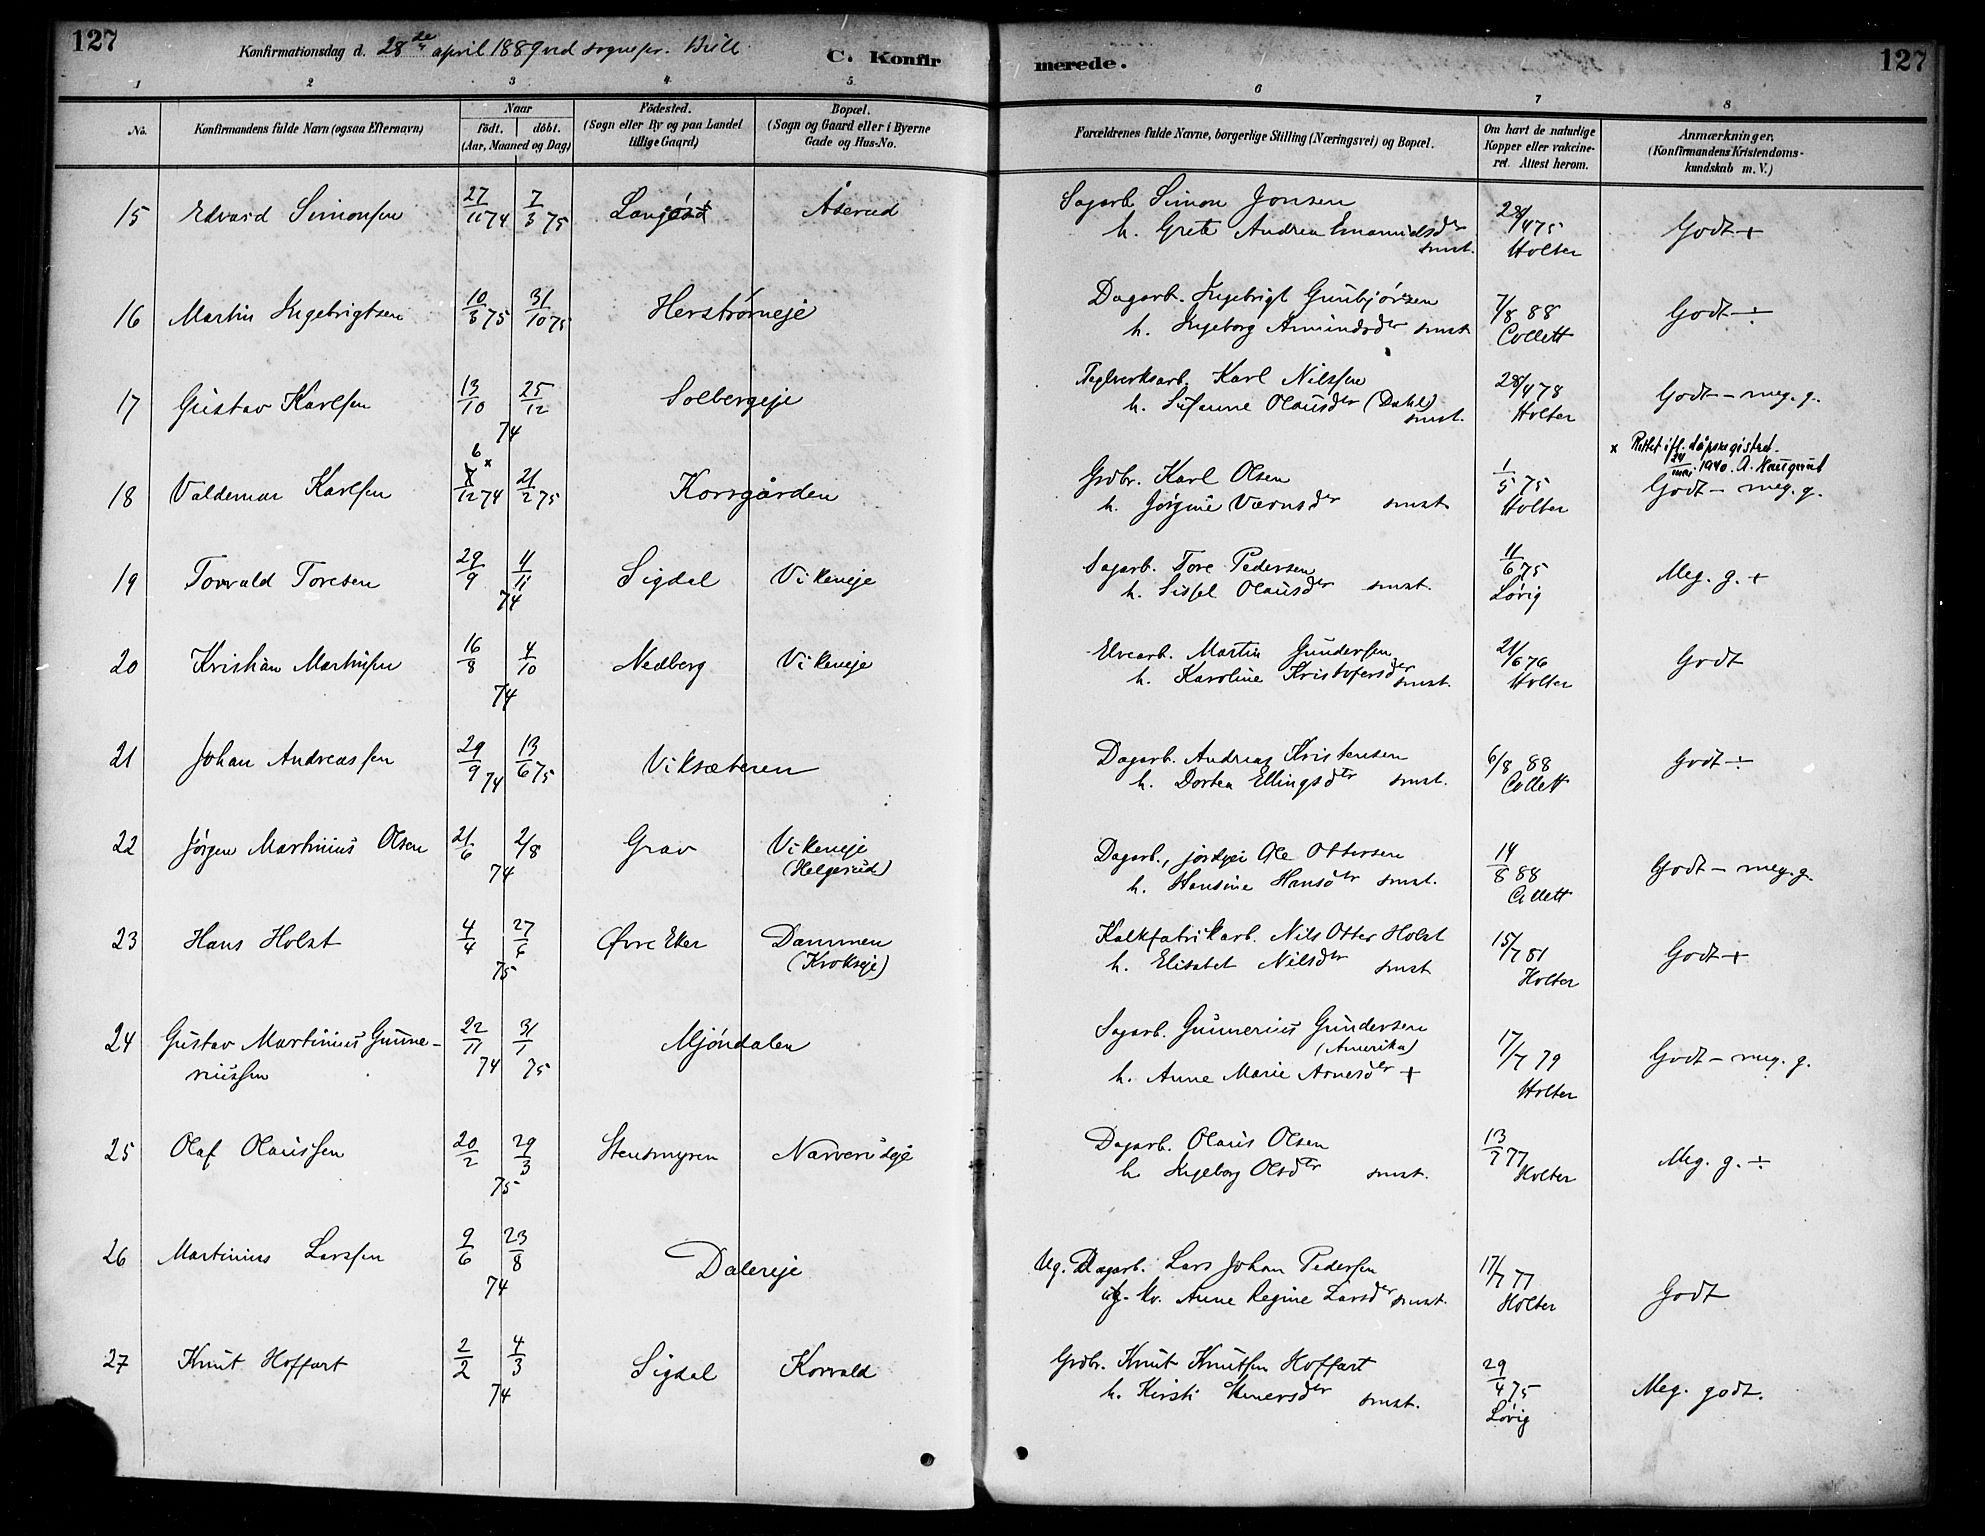 127
Konfirmationsdag d. 28de april 1889 ved sognepr.
C. Konfirmerede.
127
1 2 3 4 5 6 7 8
No.
Konfirmandens fulde Navn (ogsaa Efternavn)
Naar
födt. döbt.
(Aar, Maaned og Dag)
Födested.
(Sogn eller By og paa Landet
tillige Gaard)
Bopæl.
(Sogn og Gaard eller i Byerne
Gade og Hus-No.
Forældrenes fulde Navne, borgerlige Stilling (Næringsvei) og Bopæl.
Om havt de naturlige
Kopper eller vakcine-
ret. Attest herom.
Anmærkninger.
(Konfirmandens Kristendoms-
kundskab m. V.)
15 Edvard Simonsen 27/11 74 7/3 75 Åserud Sagarb. Simon Jonsen 28/4 75 Godt +
h. Grete Andrea Emanuelsder smst. Holter
16 Martin Ingebrigtsen 10/8 75 31/10 75 Herstrømeje Dagarb. Ingebrigt Gunbjørsen 7/8 88 Godt ÷
h. Ingeborg Amundsder smst Collett
17 Gustav Karlsen 13/10 25/12 74 Solbergeje Teglverksarb. Karl Nilssen 28/4 78 Godt - meg. g.
h. Susanne Olausder (Dahl) smst. Holter
x Rettet ifl. dåpsregistret.
24/mai 1940. A.
18 Valdemar Karlsen 6 x /12 74 21/2 75 Korsgården Grdbr. Karl Olsen 1/5 75 Godt - meg. g.
h. Jørgine Værnsder smst Holter
19 Torvald Toresen 29/9 4/11 74 Sigdal Vikeneje Sagarb. Tore Pedersen 11/6 75 Meg. g. +
h. Sissel Olausder smst. Løvig
20 Kristian Martinsen 16/8 4/10 74 Nedberg Vikeneje Elvearb. Martin Gundersen 21/6 76 Godt
h. Karoline Kristofersder smst. Holter
21 Johan Andreassen 29/9 74 13/6 75 Viksæteren Dagarb. Andreas Kristensen 6/8 88 Godt ÷
h. Dortea Ellingsder smst. Collett
22 Jørgen Martinius Olsen 21/6 2/8 74 Grav Vikeneje Dagarb., jordejer Ole Ottersen 14/8 88 Godt - meg. g.
(Helgerud) h. Hansine Hansder smst. Collett
23 Hans Holst 4/4 27/6 75 Øvre Eker Dammen Kalkfabrikarb. Nils Otter Holst 15/7 81 Godt +
(Krokseje) h. Elisabet Nilsder smst Holter
24 Gustav Martinius Gunne- 22/11 74 31/1 75 Mjøndalen Sagarb. Gunnerius Gundersen 17/7 79 Godt - meg. g.
riussen (Amerika)
h. Anne Marie Arnesder + Holter
25 Olaf Olaussen 20/2 29/3 75 Stensmyren Narverudeje Dagarb. Olaus Olsen 13/7 77 Meg. g. ÷
h. Ingeborg Olsder smst. Holter
26 Martinius Larssen 9/6 23/8 74 Dalereje Ug. Dagarb. Lars Johan Pedersen 17/7 77 Godt
ug. kv. Anne Regine Larsder smst. Holter
27 Knut Hoffart 2/2 4/3 74 Sigdal Korvald Grdbr. Knut Knutsen Hoffart 29/4 75 Meg. godt.
h. Kirsti smst. Løvig